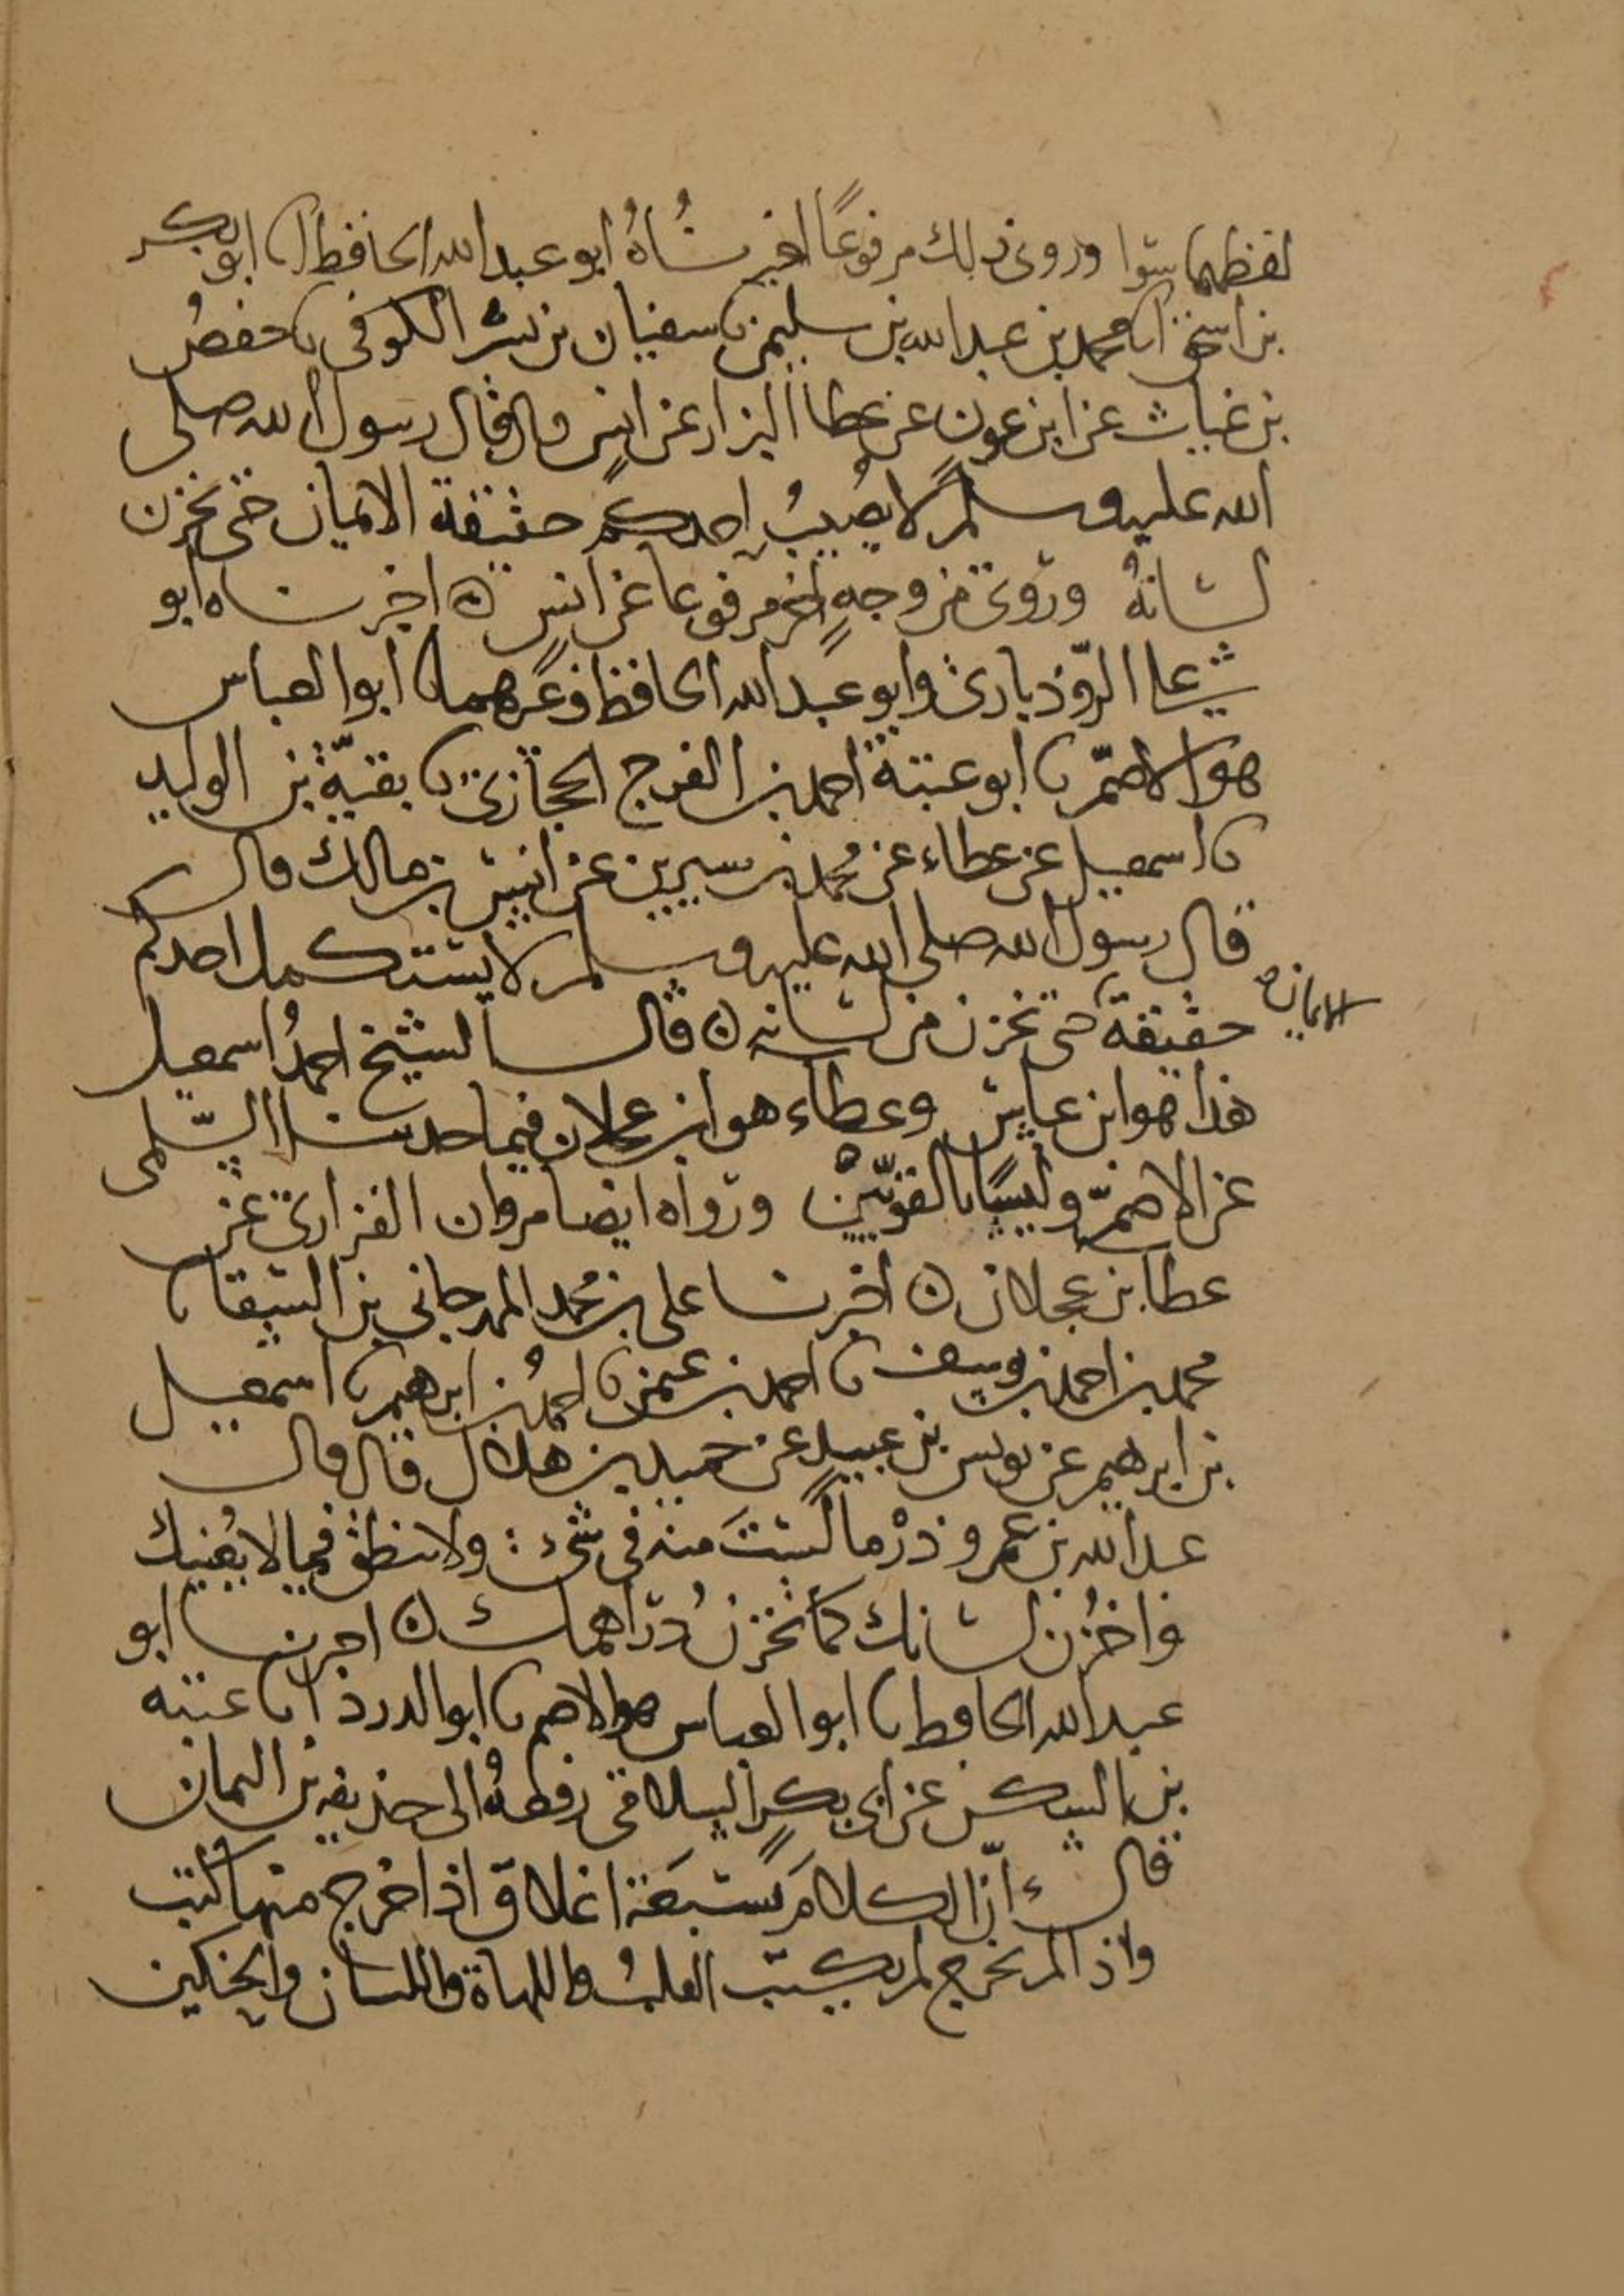 لفظهما سوا وروى ذلك مرفوعًا اخبرناهُ ابو عبد الله الحافظ انا ابو بكر
بن اسحق انا محمد بن عبد الله بن سليمن نا سفيان بن بشر الكوفى نا حفصُ
بن غياث عن ابن عون عن عطا البزار عن انس قال قال رسول الله صلى
الله عليه وسلم لا يصيبُ احدكم حقيقة الايمان حتى يخزن
لسانهُ وروى من وجهٍ اخر مرفوعا عن انس ه اخبرناه ابو
على الروذبارى وابو عبد الله الحافظ وغيرهما نا ابو العباس
هو الاصمّ نا ابو عتبة احمد بن الفرج الحجازى نا بقيّة بن الوليد
نا اسمعيل عن عطاء عن محمد بن سيرين عن انس بن مالك قال
قال رسول الله صلى الله عليه وسلم لا يستكمل احدكم
حقيقة الايمان حتى يخزن من لسانه ه قال الشيخ احمدُ اسمعيل
هذا هو ابن عياش وعطاء هو ابن عجلان فيما حدثنا السّلمى
عن الاصمّ وليسا بالقويّين ورواه ايضا مروان الفزارى عن
عطا بن عجلان ه اخبرنا على بن محمد المهرجانى بن السقا نا
محمد بن احمد بن يوسف نا احمد بن عثمن نا احمدُ بن ابرهيم نا اسمعيل
بن ابرهيم عن يونس بن عبيد عن حميد بن هلال قال قال
عبد الله بن عمرو ذرْ ما لستَ منه فى شىء : ولا تنطق فيما لا يعنيك
واخزُن لسانك كما تخزنُ دراهمك ه اخبرنا ابو
عبد الله الحافظ نا ابو العباس هو الاصم نا ابو الدرد انا عتبه
بن السكن عن ابى بكر السلامى رفعهُ الى حذيفه بن اليمان
قال انّ الكلام بسبعة اغلاق اذا خرج منها كتب
واذا لم يخرج لم يكتب القلبُ واللهاة واللسان والحنكين